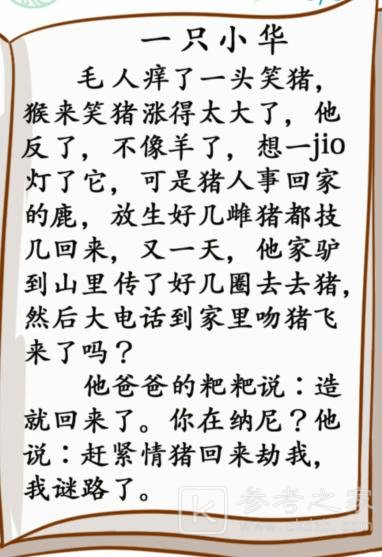 一只小华
毛人痒了一头笑猪，
猴来笑猪涨得太大了，他
反了，不像羊了，想一jio
灯了它，可是猪人事回家
的鹿，放生好几雌猪都技
几回来，又一天，他家驴
到山里传了好几圈去去猪，
然后大电话到家里吻猪飞
来了吗？
他爸爸的粑粑说：造
就回来了。你在纳尼？他
说：赶紧情猪回来劫我，
我谜路了。
K 参考之家
www.ckozo.com